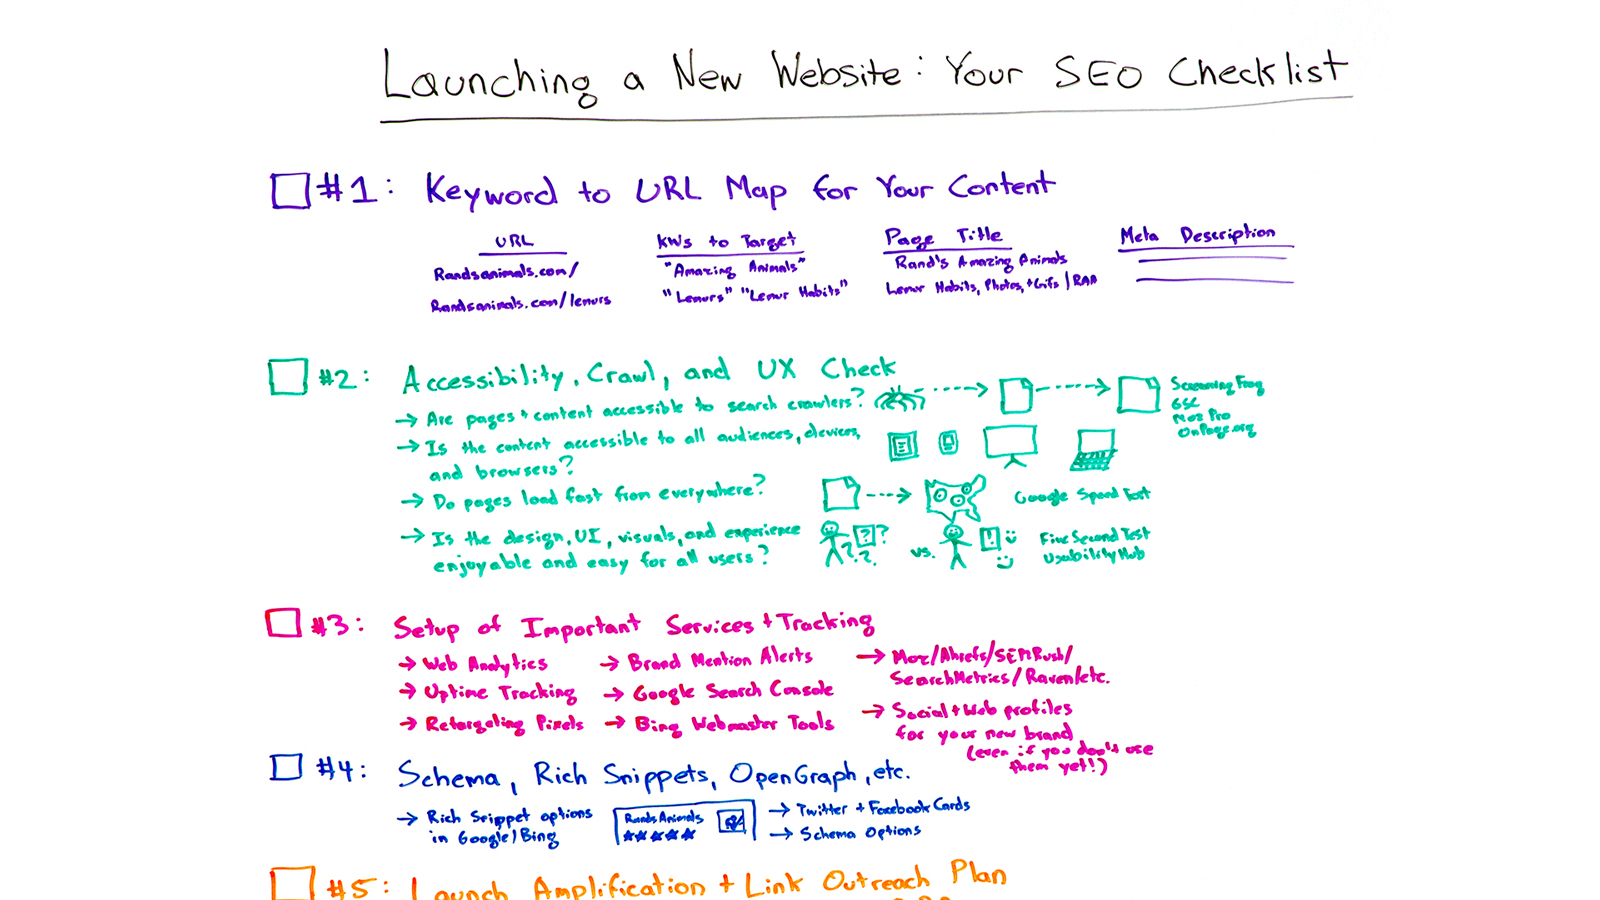 Launching a New Website: Your SEO Checklist
#1: Keyword to URL Map for Your Content
URL KWs to Target Page Title Meta Description
Randsanimals.com/ "Amazing Animals" Rand's Amazing Animals
Randsanimals.com/lemurs "Lemurs" "Lemur Habits" Lemur Habits, Photos, + Gifs | RAA
#2: Accessibility, Crawl, and UX Check
→ Are pages + content accessible to search crawlers?
Screaming Frog
GSC
Moz Pro
OnPage.org
→ Is the content accessible to all audiences, devices,
and browsers?
→ Do pages load fast from everywhere?
Google Speed Test
→ Is the design, UI, visuals, and experience
enjoyable and easy for all users?
? ? ? ? vs. !
Five Second Test
Usability Hub
#3: Setup of Important Services + Tracking
→ Web Analytics
→ Uptime Tracking
→ Retargeting Pixels
→ Brand Mention Alerts
→ Google Search Console
→ Bing Webmaster Tools
→ Moz/Ahrefs/SEMRush/
SearchMetrics/Raven/etc.
→ Social + Web profiles
for your new brand
(even if you don't use
them yet!)
#4: Schema, Rich Snippets, OpenGraph, etc.
→ Rich Snippet options
in Google/Bing
Rands Animals
→ Twitter + Facebook Cards
→ Schema Options
#5: Launch Amplification + Link Outreach Plan